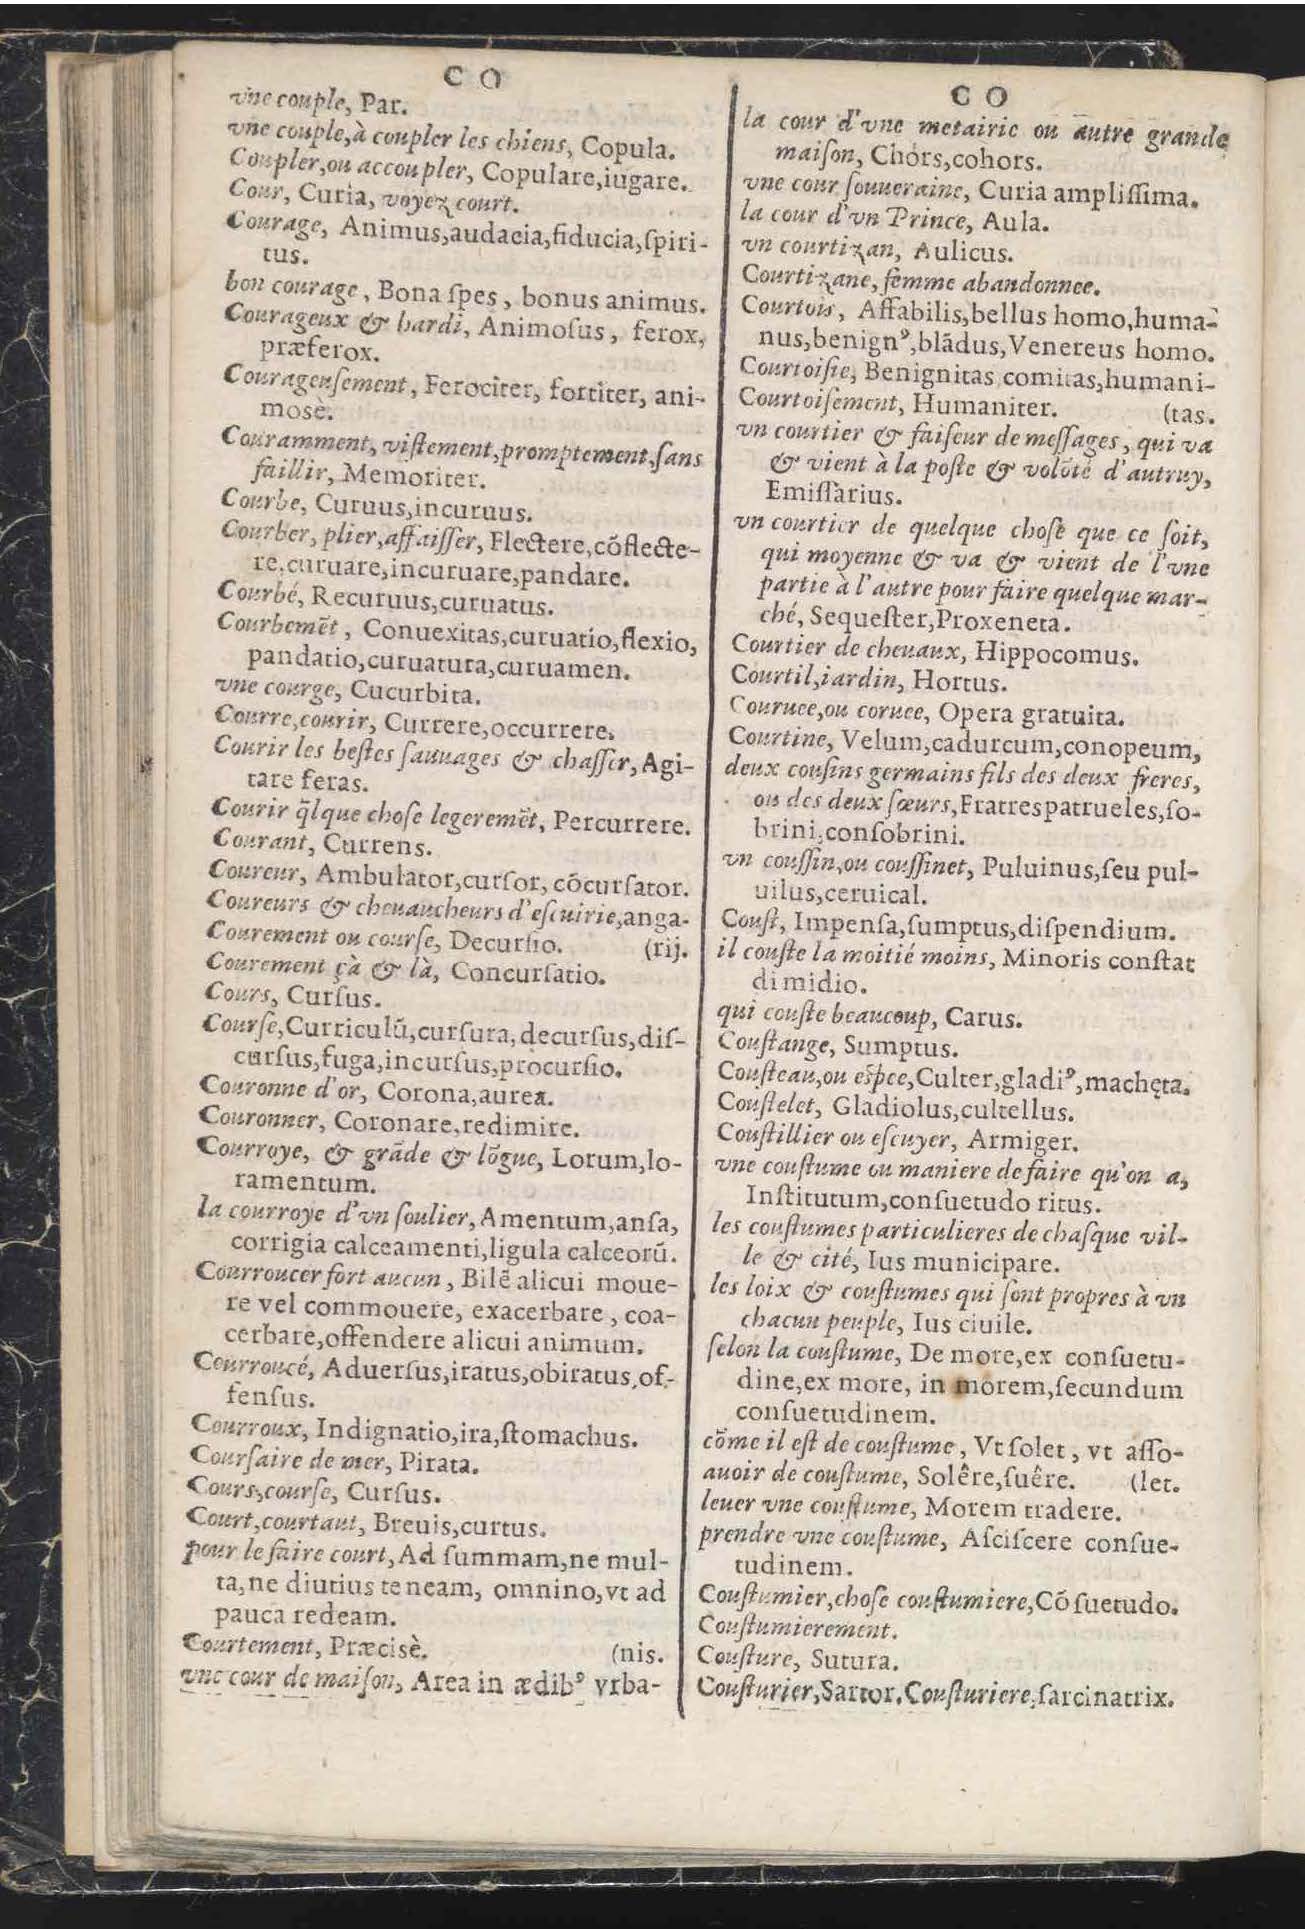 C O
vne couple, Par.
vne couple, à coupler les chiens, Copula.
Coupler, ou accoupler, Copulare, iugare.
Cour, Curia, voyez court.
Courage, Animus, audacia, fiducia, ſpiri-
tus.
bon courage, Bona ſpes, bonus animus.
Courageux & hardi, Animoſus, ferox,
præferox.
Courageuſement, Ferociter, fortiter, ani-
mosè.
Couramment, viſtement, promptement, ſans
faillir, Memoriter.
Courbe, Curuus, incuruus.
Courber, plier, affaiſſer, Flectere, cõflecte-
re, curuare, incuruare, pandare.
Courbé, Recuruus, curuatus.
Courbemẽt, Conuexitas, curuatio, flexio,
pandatio, curuatura, curuamen.
vne courge, Cucurbita.
Courre, courir, Currere, occurrere.
Courir les beſtes ſauuages & chaſſer, Agi-
tare feras.
Courir q̃lque choſe legeremẽt, Percurrere.
Courant, Currens.
Coureur, Ambulator, curſor, cõcurſator.
Coureurs & cheuaucheurs d'eſcuirie, anga-
Courement ou courſe, Decurſio. (rij.
Courement çà & là, Concurſatio.
Cours, Curſus.
Courſe, Curriculũ, curſura, decurſus, diſ-
curſus, fuga, incurſus, procurſio.
Couronne d'or, Corona, aurea.
Couronner, Coronare, redimire.
Courroye, & grãde & lõgue, Lorum, lo-
ramentum.
la courroye d'vn ſoulier, Amentum, anſa,
corrigia calceamenti, ligula calceorũ.
Courroucer fort aucun, Bilẽ alicui moue-
re vel commouere, exacerbare, coa-
cerbare, offendere alicui animum.
Courroucé, Aduerſus, iratus, obiratus, of-
fenſus.
Courroux, Indignatio, ira, ſtomachus.
Courſaire de mer, Pirata.
Cours, courſe, Curſus.
Court, courtaut, Breuis, curtus.
pour le faire court, Ad ſummam, ne mul-
ta, ne diutius teneam, omnino, vt ad
pauca redeam.
Courtement, Præcisè. (nis.
vne cour de maiſon, Area in ædibꝰ vrba-
C O
la cour d'vne metairie ou autre grande
maiſon, Chórs, cohors.
vne cour ſouueraine, Curia ampliſſima.
la cour d'vn Prince, Aula.
vn courtizan, Aulicus.
Courtizane, femme abandonnee.
Courtois, Affabilis, bellus homo, huma-
nus, benignꝰ, blãdus, Venereus homo.
Courtoiſie, Benignitas, comitas, humani-
Courtoiſement, Humaniter. (tas.
vn courtier & faiſeur de meſſages, qui va
& vient à la poſte & volõté d'autruy,
Emiſſarius.
vn courtier de quelque choſe que ce ſoit,
qui moyenne & va & vient de l'vne
partie à l'autre pour faire quelque mar-
ché, Sequeſter, Proxeneta.
Courtier de cheuaux, Hippocomus.
Courtil, iardin, Hortus.
Couruee, ou coruee, Opera gratuita.
Courtine, Velum, cadurcum, conopeum,
deux couſins germains fils des deux freres,
ou des deux ſœurs, Fratres patrueles, ſo-
brini, conſobrini.
vn couſſin, ou couſſinet, Puluinus, ſeu pul-
uilus, ceruical.
Couſt, Impenſa, ſumptus, diſpendium.
il couſte la moitié moins, Minoris conſtat
dimidio.
qui couſte beaucoup, Carus.
Couſtange, Sumptus.
Couſteau, ou eſpce, Culter, gladiꝰ, machęta.
Couſtelet, Gladiolus, cultellus.
Couſtillier ou eſcuyer, Armiger.
vne couſtume ou maniere de faire qu'on a,
Inſtitutum, conſuetudo ritus.
les couſtumes particulieres de chaſque vil-
le & cité, Ius municipare.
les loix & couſtumes qui ſont propres à vn
chacun peuple, Ius ciuile.
ſelon la couſtume, De more, ex conſuetu-
dine, ex more, in morem, ſecundum
conſuetudinem.
cõme il eſt de couſtume, Vt ſolet, vt aſſo-
auoir de couſtume, Solêre, ſuêre. (let.
leuer vne couſtume, Morem tradere.
prendre vne couſtume, Aſciſcere conſue-
tudinem.
Couſtumier, choſe couſtumiere, Cõſuetudo.
Couſtumierement.
Couſture, Sutura.
Couſturier, Sartor. Couſturiere, ſarcinatrix.